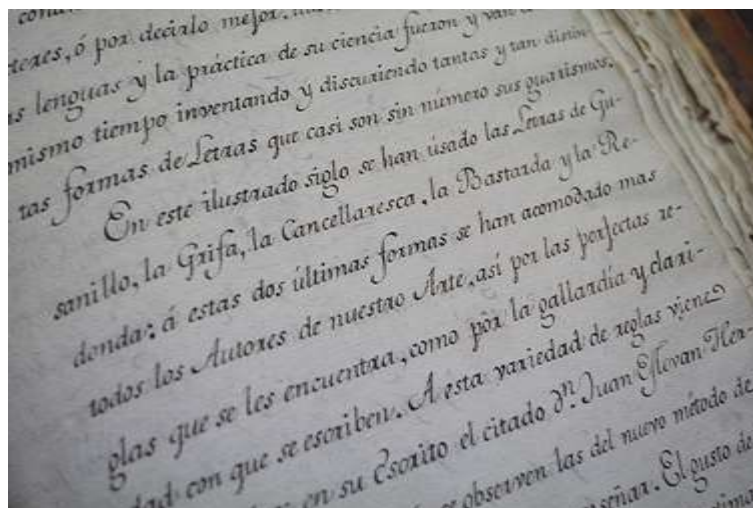 cteres, ó por decirlo mejor,
s lenguas y la práctica de su ciencia fueron y van
mismo tiempo inventando y discuriendo tantas y tan distin-
tas formas de Letras que casi son sin número sus guarismos.
En este ilustrado siglo se han úsado las Letras de Gu-
sanillo, la Grifa, la Cancellaresca, la Bastarda y la Re-
donda: á estas dos últimas formas se han acomodado mas
todos los Autores de nuestro Arte, así por las perfectas re-
glas que se les encuentra, como pôr la gallardía y clari-
dad con que se escriben. A esta variedad de reglas viene
en su Escrito el citado Dn. Juan Estevan Her-
se observen las del nuevo método de
señar. El gusto de